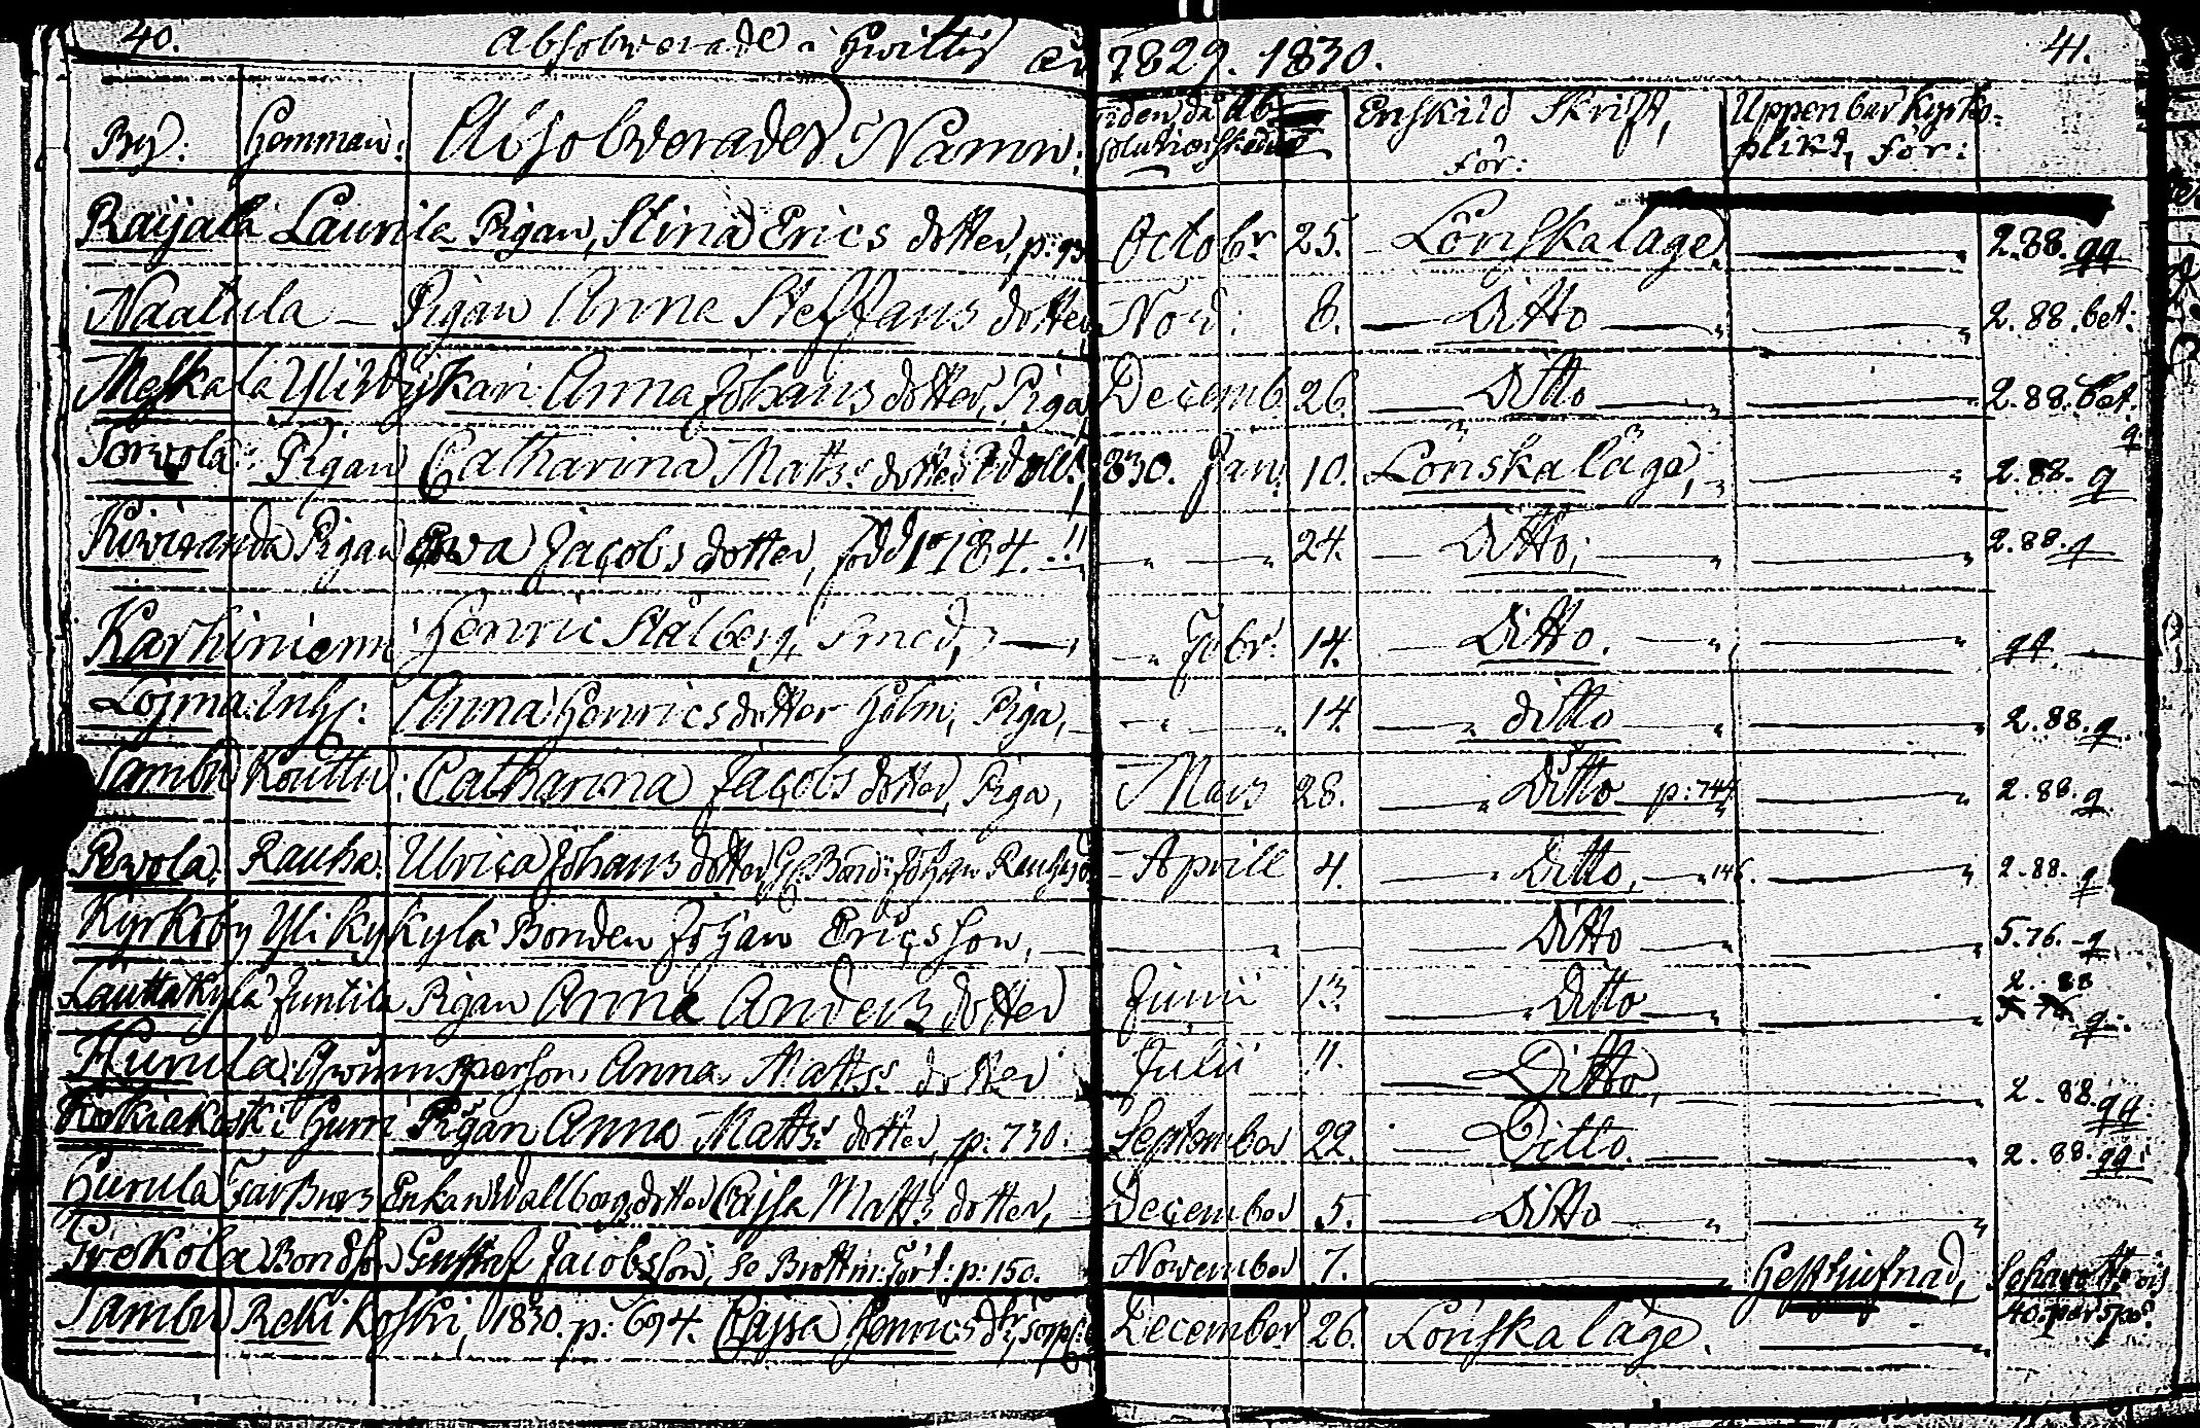 40. Absolverade i Hvittis år 1829. 1830. 41.
By: Hemman: Absolverades Namn: Tiden då Absolution skedde Enskild Skrift, för: Uppenbar Kyrkoplikt, för:
Raijala Laurila Pigan, Stina Erics dotter, p: 93 Octobr. 25. Lönskaläge, 2.88. qq
Naatula Pigan Anna Steffans dotter Nov: 8. Ditto 2.88. bet:
Meskala Anna Johans dotter, Piga, Decemb 26. Ditto 2.88. bet.
Sorvola: Pigan Catharina Matts: dotter 1830. Jan: 10. Lönskaläge, 2.88. q
Pigan Ewa Jacobs dotter, född 1784. 24. Ditto; 2.88. q
Karhiniemi Henric Stålberg, Smed, Febr: 14. Ditto. qq.
Lojma: Inhs: Anna Henrics dotter Holm, Piga, 14. ditto 2.88. q.
Sambu Kouttu: Catharina Jacobs dotter, Piga, Mars 28. Ditto p: 744 2.88. q.
Pevola: Rauha: Ulrica Johans dotter, Aprill 4. Ditto, 146. 2.88. q
Kyrkoby Yli Kykylä Bonden Johan Ericsson, Ditto 5.76. q.
Lauttakylä Juntila Pigan Anna Anders dotter Junii 13. Ditto 2.88 q.
Hurula: Qwinnsperson Anna Matts: dotter Julii 11. Ditto, 2.88. qq:
Kokiakoski Hurri Pigan Anna Matts: dotter, p: 730: September 22. Ditto. 2.88. qq:
Hurula Enkan Wallborg dotter Cajsa Matts dotter, December 5. Ditto
Krekola Bondson Gustaf Jacobsson, se Brottm: Fört: p: 150. November 7. Hästtjufnad,
Sambu Reki Koski, 1830. p: 694. Cajsa Henrics dtr, December 26. Lönskaläge.